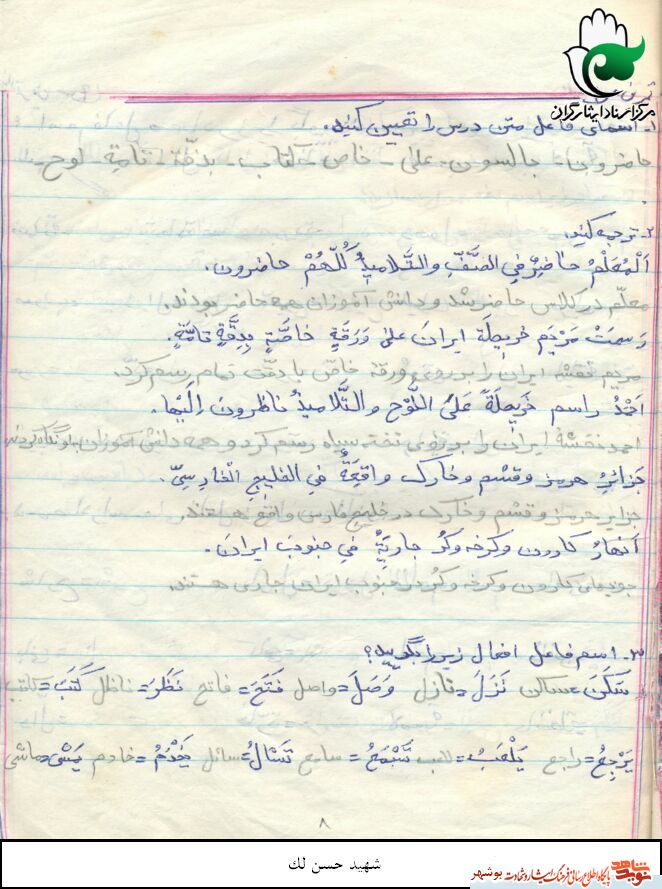 مرکز اسناد ایثارگران
۱- اسمای فاعل متن درس را تعیین کنید.
حاضرون - جالسون - علی - خاص - کتاب - بدقّة - تامّة - لوح -
۲- ترجمه کنید.
اَلْمُعَلِّمُ حاضِرٌ فِي الصَّفِّ والتَّلامیذُ کُلُّهُمْ حاضرون.
معلّم در کلاس حاضر شد و دانش آموزان همه حاضر بودند.
رَسمَتْ مَرْیَم خریطَة ایرانَ عَلیٰ وَرَقَةٍ خاصَّةٍ بِدِقَّةٍ تامَّةٍ.
مریم نقشه ایران را بر روی ورقهٔ خاصّ با دقّت تمام رسم کرد.
اَحْمَدُ راسم خَریطَةً عَلَی اللَّوْح والتَّلامیذُ ناظرون اِلَیْها.
احمد نقشهٔ ایران را بر روی تخته سیاه رسم کرد و همه دانش آموزان به او نگاه کردند
جَزائرُ هرمز و قشم و خارک واقِعَةٌ فِي الخلیج الْفارسِیّ.
جزایر هرمز و قشم و خارک در خلیج فارس واقع هستند.
اَنهارُ کارون و کرخه و کُر جاریَةٌ في جنوب ایرانَ.
جویهای کارون و کرخه و کُر در جنوب ایران جاری هستند.
۳- اسم فاعل افعال زیر را بگویید؟
سَکَنَ = ساکن نَزَلَ = نازل وَصَلَ = واصل فَتَحَ = فاتح نَظَرَ = ناظر کَتَبَ = کاتب
یَرْجِعُ = راجع یَلْعَبُ = لاعب تَسْمَعُ = سامع تَسْألُ = سائل یَخْدُمُ = خادم یَمشي = ماشی
۸
شهید حسن لك
نوید شاهد پایگاه اطلاع رسانی فرهنگ ایثار و شهادت بوشهر